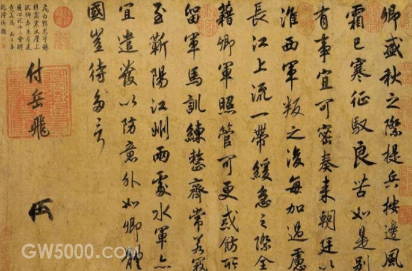 卿盛秋之際提兵按邊風
霜已寒征馭良苦如是別
有事宜可密奏來朝廷以
淮西軍叛之後每加過慮
長江上流一帶緩急之際全
藉卿軍照管可更戒飭所
留軍馬訓練整齊常若寇
至蘄陽江州兩處水軍亦
宜遣發以防意外如卿體
國豈待多言
付岳飛
GW5000.com